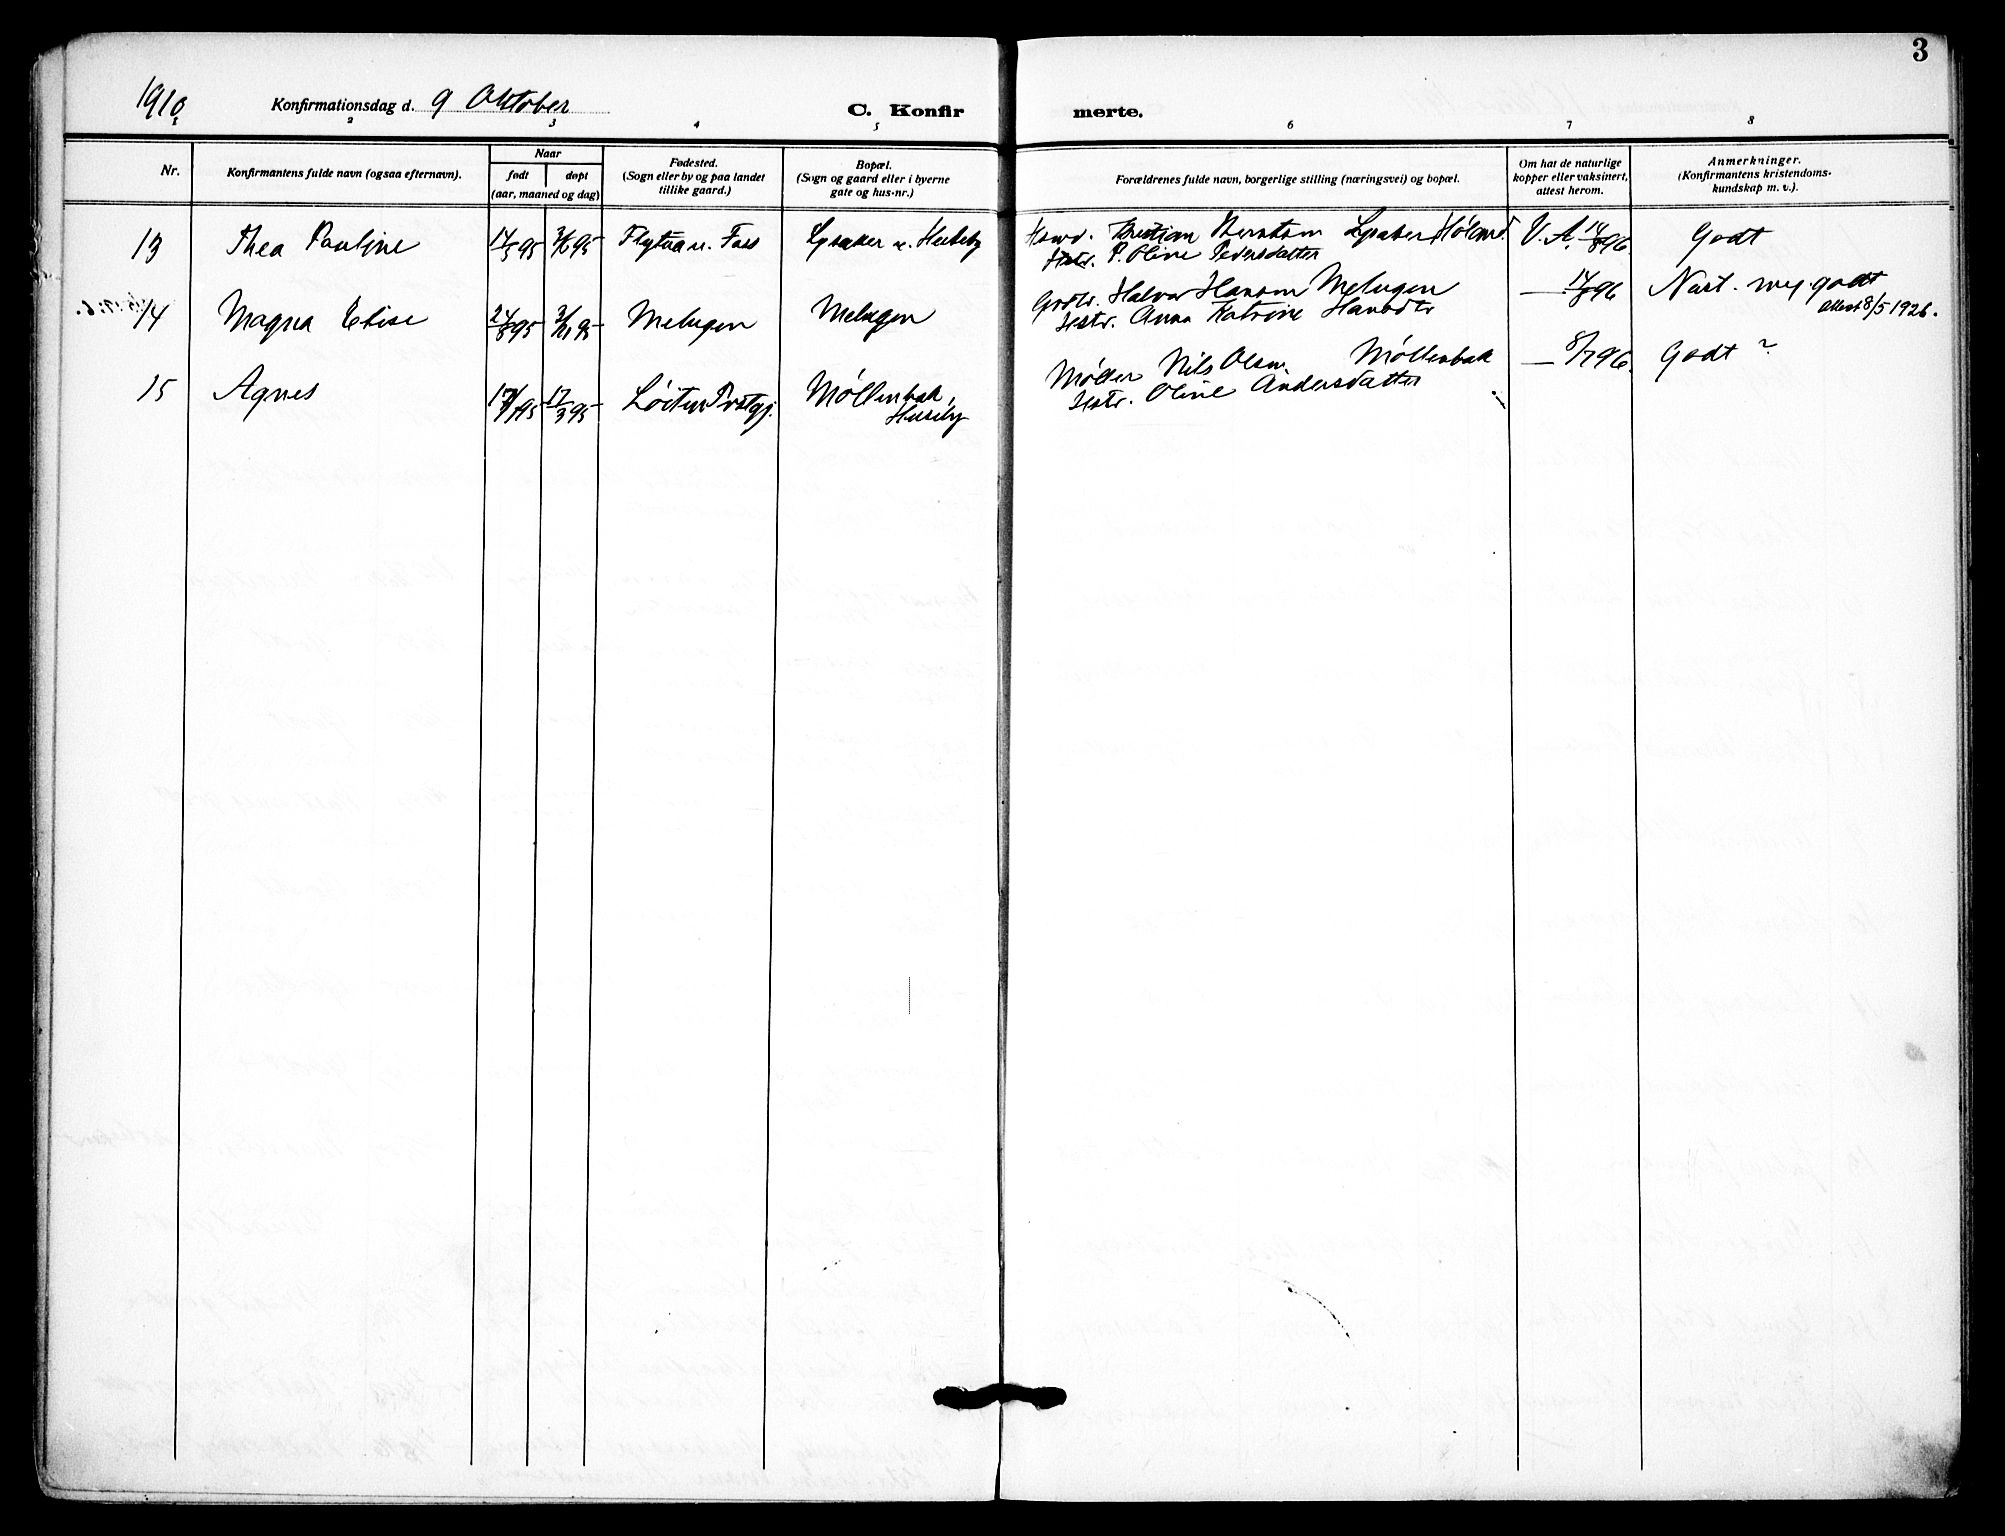 3
1910 Konfirmationsdag d. 9 Oktober C. Konfirmerte.
1 2 3 4 5 6 7 8
Nr.
Konfirmantens fulde navn (ogsaa efternavn).
Naar
født døpt
(aar, maaned og dag)
Fødested.
(Sogn eller by og paa landet
tillike gaard.)
Bopæl.
(Sogn og gaard eller i byerne
gate og hus-nr.)
Forældrenes fulde navn, borgerlige stilling (næringsvei) og bopæl.
Om hat de naturlige
kopper eller vaksinert,
attest herom.
Anmerkninger.
(Konfirmantens kristendoms-
kundskap m. v.).
13 Thea Pauline 14/5 95 Foss Lysaker Kristian Lysaker V. A. 14/8 96. Godt
P. Oline Pedersdatter
14 Magna Elise 24/8 95 Melugen Melugen Halvor Hansen Melugen — 14/8 96 Næst. meg godt
Hstr. Anna Katrine Hansdtr Attest 8/5 1926.
15 Agnes 17/3 95 Løiten Møllenbak, Møller Nils Olsen Møllenbak — 8/7 96. Godt ?
Huseby Hstr. Oline Andersdatter